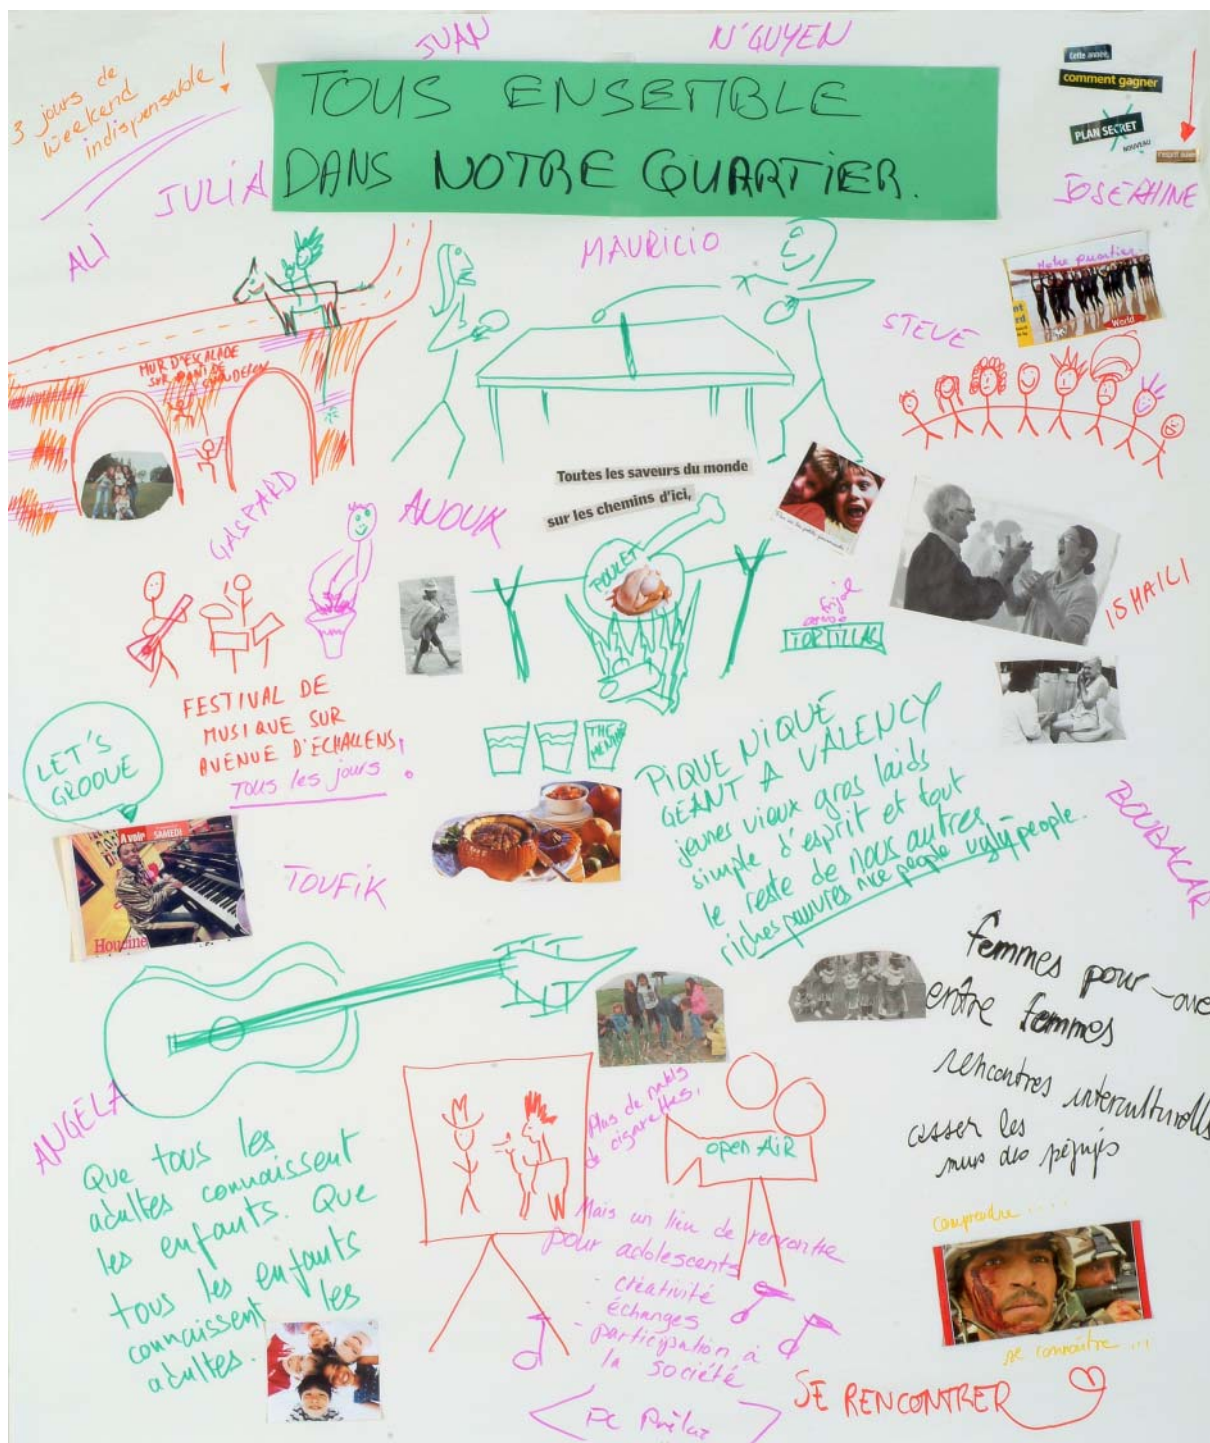 JUAN
N'GUYEN
3 jours de
weekend
indispensable !
TOUS ENSEMBLE
DANS NOTRE QUARTIER.
Cette année,
comment gagner
PLAN SECRET
NOUVEAU
JULIA
JOSEPHINE
ALI
MAURICIO
Notre quartier
World
STEVE
MUR D'ESCALADE
SUR PONT DE
CHAUDERON
Toutes les saveurs du monde
sur les chemins d'ici,
GASPARD
ANOUK
POULET
frijol
TORTILLAS
ISMAILI
FESTIVAL DE
MUSIQUE SUR
AVENUE D'ECHALLENS!
Tous les jours !
LET'S
GROOVE
THE
MENTHE
PIQUE NIQUE
GEANT A VALENCY
jeunes vieux gros laids
simple d'esprit et tout
le reste de nous autres
riches pauvres nice people ugly people.
BOUBACAR
A voir SAMEDI
Houcine
TOUFIK
femmes pour
entre femmes
rencontres interculturelles
casser les
murs des péjujés
ANGELA
Que tous les
adultes connaissent
les enfants. Que
tous les enfants
connaissent les
adultes.
Plus de
cigarettes,
open AiR
Mais un lieu de rencontre
pour adolescents
- créativité
- échanges
- participation à
la société
comprendre ....
se connaître ...
SE RENCONTRER